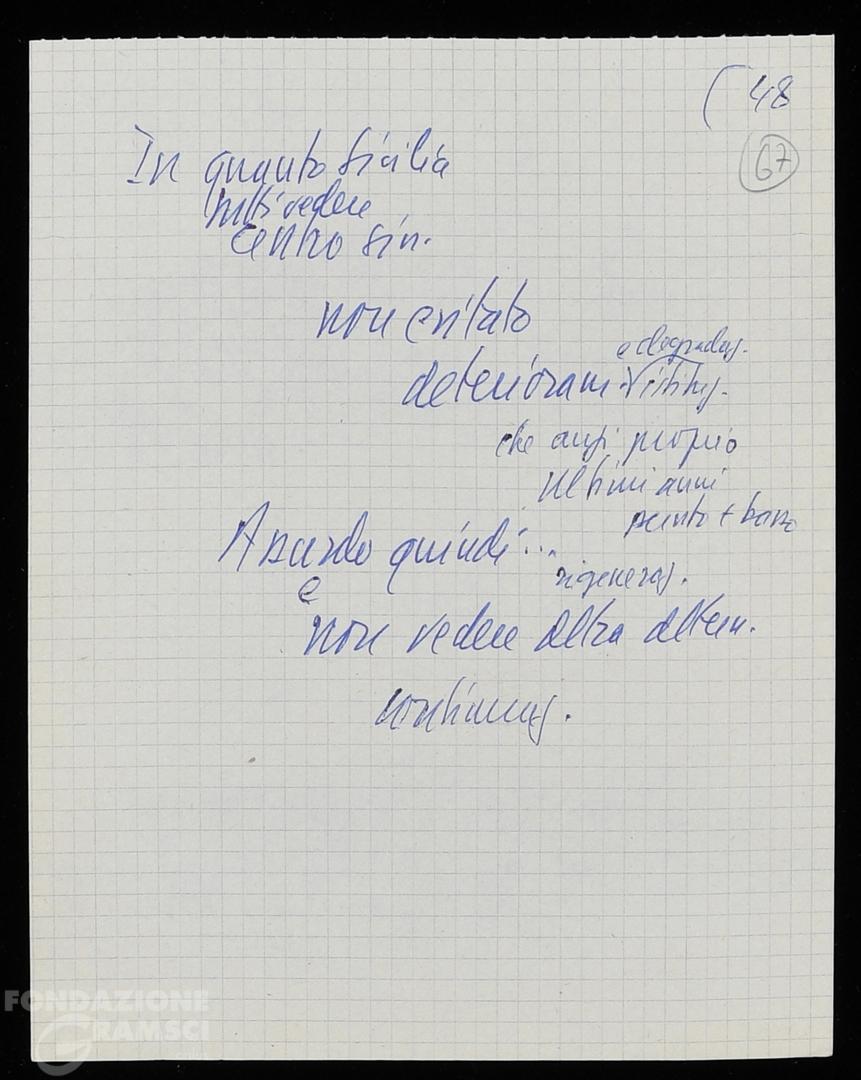 (48
67
In quanto Sicilia
vedere
centro sin.
non evitato
e degradaz.
olterioram. istituz.
che anzi proprio
ultimi anni
punto + basso
Assurdo quindi...
rigeneraz.
e
non vedere altra altern.
continuaz.
FONDAZIONE
GRAMSCI